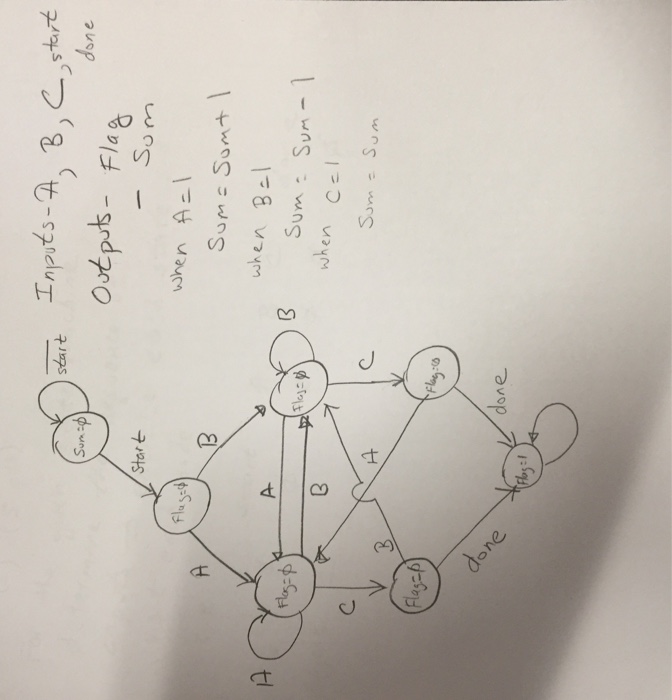 Inputs - A, B, C, start
done
Outputs - Flag
- Sum
when A=1
Sum = Sum + 1
when B=1
Sum = Sum - 1
when C=1
Sum = Sum
start
Sum=ϕ
start
Flag=ϕ
A
B
A
Flag=ϕ
A
B
Flag=ϕ
B
C
B
A
C
Flag=ϕ
Flag=ϕ
done
done
Flag=1